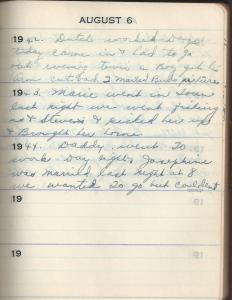 AUGUST 6
1942. Dutch worked Days
today came in & had to go
out evening twice a boy got his
arm cut bad 2 Mailed Bud's pictures
1943. Marie went in town
last night we went fishing
& Stevens & picked her up
& Brought her home
1944. Daddy went to
work Day night. Josephine
was married last night at 8
we wanted to go but couldent
19
19